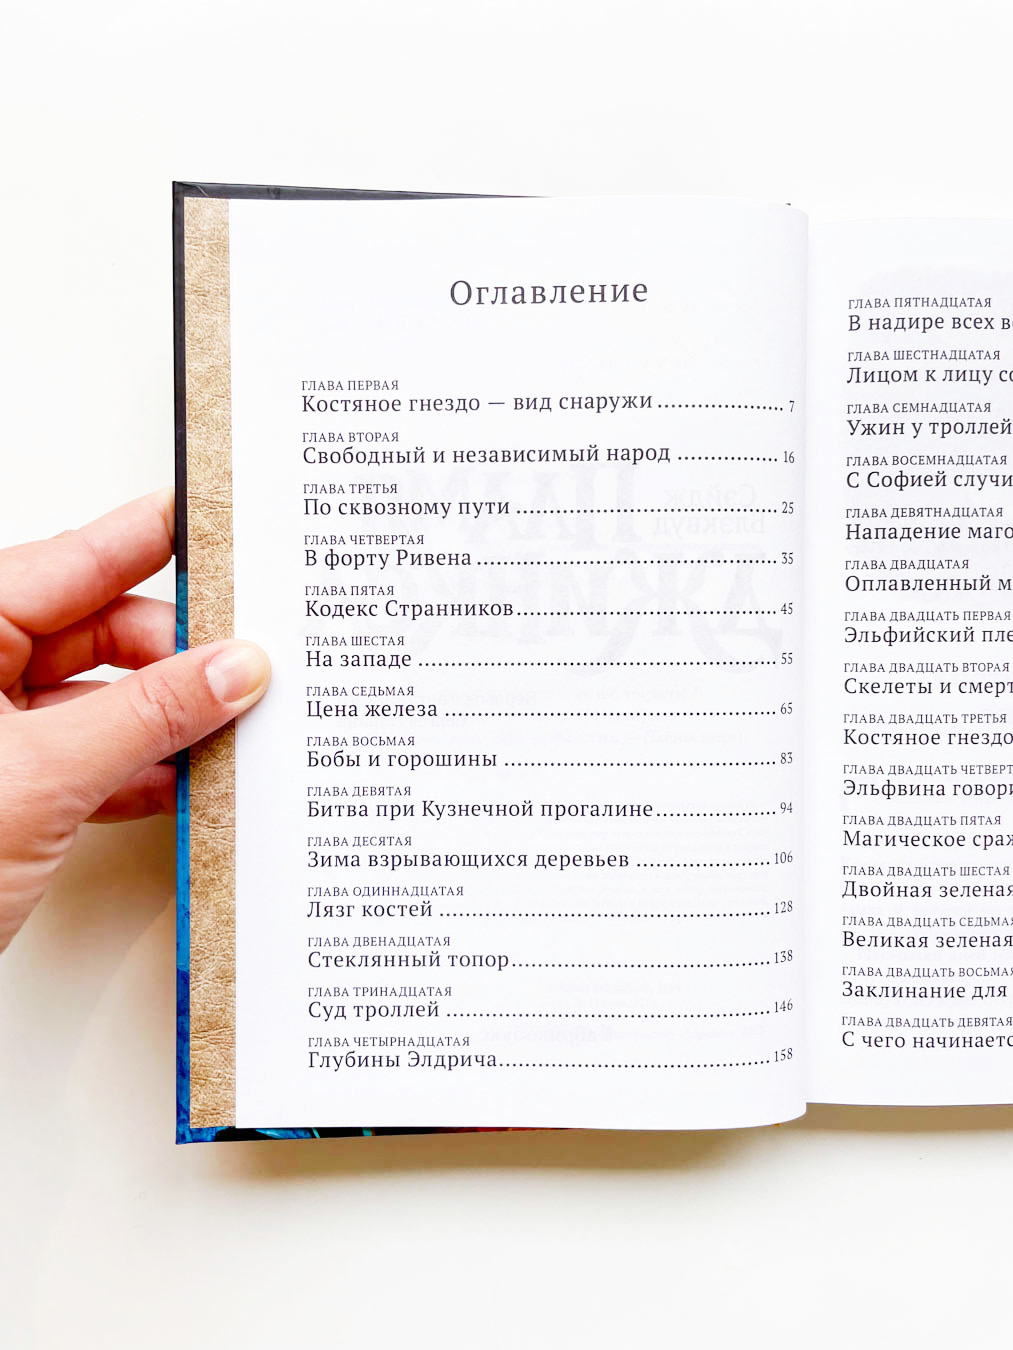 Оглавление
ГЛАВА ПЕРВАЯ
Костяное гнездо — вид снаружи.................... 7
ГЛАВА ВТОРАЯ
Свободный и независимый народ ................ 16
ГЛАВА ТРЕТЬЯ
По сквозному пути ........................................ 25
ГЛАВА ЧЕТВЕРТАЯ
В форту Ривена .............................................. 35
ГЛАВА ПЯТАЯ
Кодекс Странников........................................ 45
ГЛАВА ШЕСТАЯ
На западе ........................................................ 55
ГЛАВА СЕДЬМАЯ
Цена железа .................................................... 65
ГЛАВА ВОСЬМАЯ
Бобы и горошины .......................................... 83
ГЛАВА ДЕВЯТАЯ
Битва при Кузнечной прогалине.................. 94
ГЛАВА ДЕСЯТАЯ
Зима взрывающихся деревьев .................... 106
ГЛАВА ОДИННАДЦАТАЯ
Лязг костей .................................................... 128
ГЛАВА ДВЕНАДЦАТАЯ
Стеклянный топор........................................ 138
ГЛАВА ТРИНАДЦАТАЯ
Суд троллей .................................................... 146
ГЛАВА ЧЕТЫРНАДЦАТАЯ
Глубины Элдрича.......................................... 158
ГЛАВА ПЯТНАДЦАТАЯ
В надире всех
ГЛАВА ШЕСТНАДЦАТАЯ
Лицом к лицу
ГЛАВА СЕМНАДЦАТАЯ
Ужин у троллей
ГЛАВА ВОСЕМНАДЦАТАЯ
С Софией
ГЛАВА ДЕВЯТНАДЦАТАЯ
Нападение
ГЛАВА ДВАДЦАТАЯ
Оплавленный
ГЛАВА ДВАДЦАТЬ ПЕРВАЯ
Эльфийский
ГЛАВА ДВАДЦАТЬ ВТОРАЯ
Скелеты и
ГЛАВА ДВАДЦАТЬ ТРЕТЬЯ
Костяное гнездо
ГЛАВА ДВАДЦАТЬ
Эльфвина
ГЛАВА ДВАДЦАТЬ ПЯТАЯ
Магическое
ГЛАВА ДВАДЦАТЬ ШЕСТАЯ
Двойная зеленая
ГЛАВА ДВАДЦАТЬ СЕДЬМАЯ
Великая зеленая
ГЛАВА ДВАДЦАТЬ ВОСЬМАЯ
Заклинание для
ГЛАВА ДВАДЦАТЬ ДЕВЯТАЯ
С чего